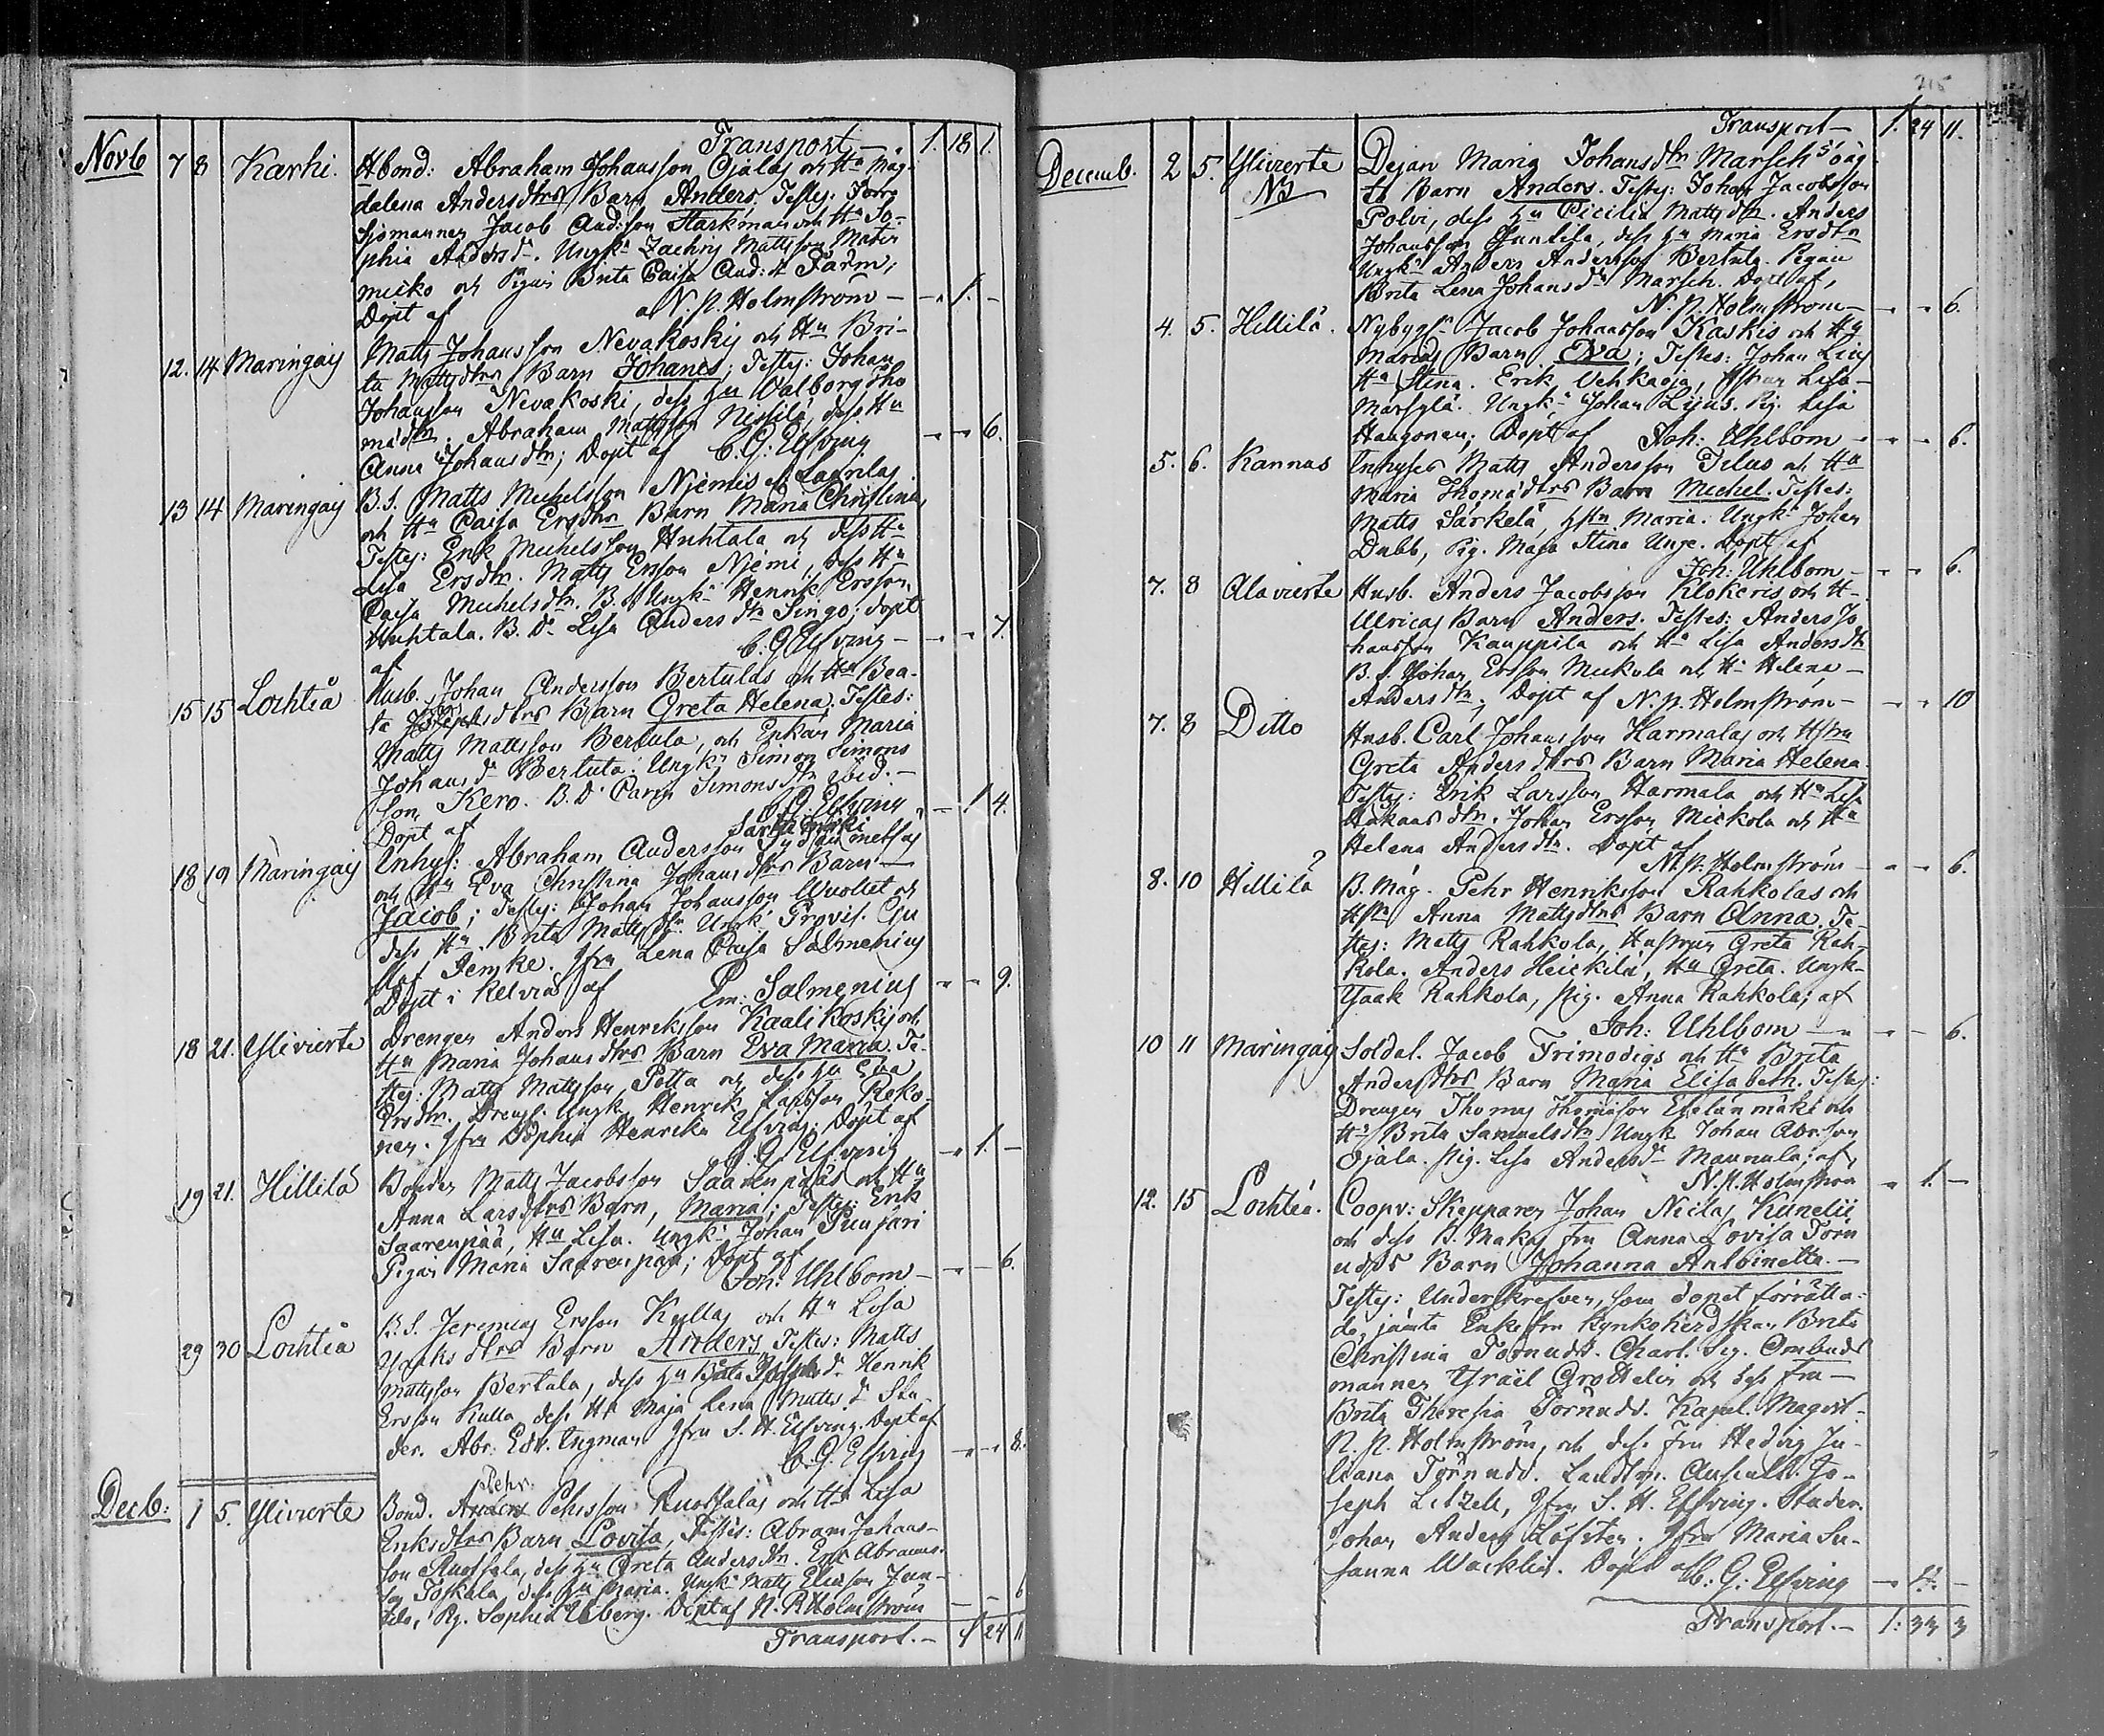 Transport — 1. 18 1.
Novb 7 8 Karhi. Hbond: Abraham Johansson Ojalas och Hu Mag-
dalena Andersdtrs Barn Anders. Testes: Torp
Sjömannen Jacob And:son Starkman och Hu So-
phia Andersdr. Ungk: Zachris Mattsson
micko och Pigan Brita Caisa And:dr Farm;
Döpt af N. P. Holmström — - 1. -
12. 14 Maringais Matts Johansson Nevakoskis och Hu Bri-
ta Mattsdtrs Barn Johanes; Testes: Johan
Johansson Nevakoski, dess Hu Valborg Tho
mädtr. Abraham Mattsson Nissilä, dess Hu
Anna Johansdtr; Döpt af C. G. Elfving - - 6.
13 14 Maringais B.S. Matts Michelsson Niemis
och Hu Caisa Ersdtrs Barn Maria Christina,
Testes: Erik Michelsson Huhtala och dess Hu
Lisa Ersdtr. Matts Ersson Niemi, dess Hu
Caisa Michelsdtr. B.S. Ungk: Henrik Ersson
Huhtala. B.D. Lisa Andersdtr Singo; döpt
af C. G. Elfving - - - 7.
15 15 Lochteå Husb. Johan Andersson Bertulas och Hu Bea-
ta Josephsdtrs Barn Greta Helena. Testes:
Matts Mattsson Bertula, och Enkan Maria
Johansdr Bertula. Ungk: Simon Simons
son Kero. B.D. Carin Simonsdtr ibid. -
Döpt af C. G. Elfving - - 1 4.
18 19 Maringais Inhys: Abraham Andersson
och Hu Eva Christina Johansdtrs Barn —
Jacob; Testes: Johan Johansson och
dess Hu Brita Mattsdtr. Ungk. Provis. Gu
staf Jemke. Jfru Lena Caisa Salmenius
Döpt i Kelviå af Em: Salmenius - - 9.
18 21. Ylivierte Drengen Anders Henriksson Kaalikoskis och
Hu Maria Johansdtrs Barn Eva Maria. Te-
stes: Matts Mattsson Potta och dess Hu Eva
Ersdtr. Dreng: Ungk. Henrik Larsson Reko-
nen. Jfru Sophia Henrika Elfving; Döpt af
C. G. Elfving - 1. -
19 21. Hillilä Bonden Matts Jacobsson Saarenpääs och Hu
Anna Larsdtrs Barn, Maria; Testes: Erik
Saarenpää, Hu Lisa. Ungk: Johan Junjari
Pigan Maria Saarenpää; Döpt af
Joh: Uhlbom — - - 6.
29 30 Lochteå B.S. Jeremias Ersson Kullas och Hu Lisa
Yaaksdtrs Barn Anders, Testes: Matts
Mattsson Bertula, dess Hu Beata Josephsdr Henrik
Ersson Kulla dess Hu Maja Lena Mattsdr Stu-
der. Abr: Edv. Ingman Jfru S. H. Elfving. Döpt af
C. G. Elfving - - 8.
Decb: 1 5. Ylivierte Bond. Pehr Pehrsson Ruotsalas och Hu Lisa
Eriksdtrs Barn Lovisa, Testes: Abram Johans-
son Ruotsala, dess Hu Greta Andersdtr. Erik Abrams-
son Toskala, dess Hu Maria. Ungk: Matts Eliasson Jun-
tila, Pig. Sophia Uhberg. Döpt af N. P. Holmström — — 6
Transport. — 1 24 11
215
Transport — 1. 24 11.
Decemb. 2 5. Ylivierte Dejan Maria Johansdtr Marsch's oäg-
NB ta Barn Anders. Testes: Johan Jacobsson
Polvi, dess Hu Cicilia Mattsdtr. Anders
Johansson Juntila, dess Hu Maria Ersdtr
Ungk: Anders Andersson Bertula. Pigan
Brita Lena Johansdr Marsch. Döpt af,
N. P. Holmström — - - 6.
4. 5. Hillilä. Nybygg: Jacob Johansson Kaskis och Hu
Marias Barn Eva; Testes: Johan Lius
Hu Stina. Erik Vehkaoja, Hstrun Lisa —
Marsylä. Ungk: Johan Lius. Pig. Lisa
Haugonen; Döpt af Joh: Uhlbom - - - 6.
5. 6. Kannas Inhyses Matts Andersson Filus och Hu
Maria Thomädtrs Barn Michel. Testes:
Matts Särkelä, Hstru Maria. Ungk: Johan
Dubb, Pig. Maja Stina Unge. Döpt af
Joh: Uhlbom — - - 6.
7. 8 Alavierte Husb. Anders Jacobsson Klokeris och H-
Ulricas Barn Anders. Testes: Anders Jo
hansson Kauppila och Hu Lisa Andersdtr
B.S. Johan Ersson Mickola och Hu Helena —
Andersdtr; Döpt af N. P. Holmström — - - 10
7. 8 Ditto Husb. Carl Johansson Harmalas och Hstru
Greta Andersdtrs Barn Maria Helena.
Testes: Erik Larsson Harmala och Hu Lisa
Håkansdtr. Johan Ersson Mickola och Hu
Helena Andersdtr. Döpt af
N. P. Holmström — - - 6.
8. 10 Hillilä B. Måg. Pehr Henriksson Rahkolas och
Hstru Anna Mattsdtrs Barn Anna. Te-
stes: Matts Rahkola, Hustrun Greta Rah-
kola. Anders Heickilä, Hu Greta. Ungk-
Yaak Rahkola, Pig. Anna Rahkola; af
Joh: Uhlbom — - - 6.
10 11 Maringais Soldat. Jacob Frimodigs och Hu Brita
Andersdtrs Barn Maria Elisabeth. Testes:
Drengen Thomas Thomasson Etelänmäki och
Hu Brita Samuelsdtr Ungk. Johan Abr:son
Ojala. Pig. Lisa Andersdr Maunula; af,
N. P. Holmström - 1. -
12. 15 Lochteå. Coopv: Skepparen Johan Niclas Kunelii
och dess K. Makas fru Anna Lovisa Törn
udds Barn Johanna Antoinetta. —
Testes: Underskrefven, som dopet förrätta-
de, jämte Enkefru Kyrkoherdskan Brita
Christina Törnudd. Charl. Seg. Ombuds
mannen Ysraël Grothelin och dess fru —
Brita Theresia Törnudd. Kapel. Magist-
N. P. Holmström, och dess fru Hedvig Ju-
liana Törnudd. Landtm. Auscult. Jo-
seph Litzell, Jfru S. H. Elfving. Studer.
Johan Anders Löfsten. Jfru Maria Su-
sanna Wacklin. Döpt af C. G. Elfving —
Transport. — 1: 33 3